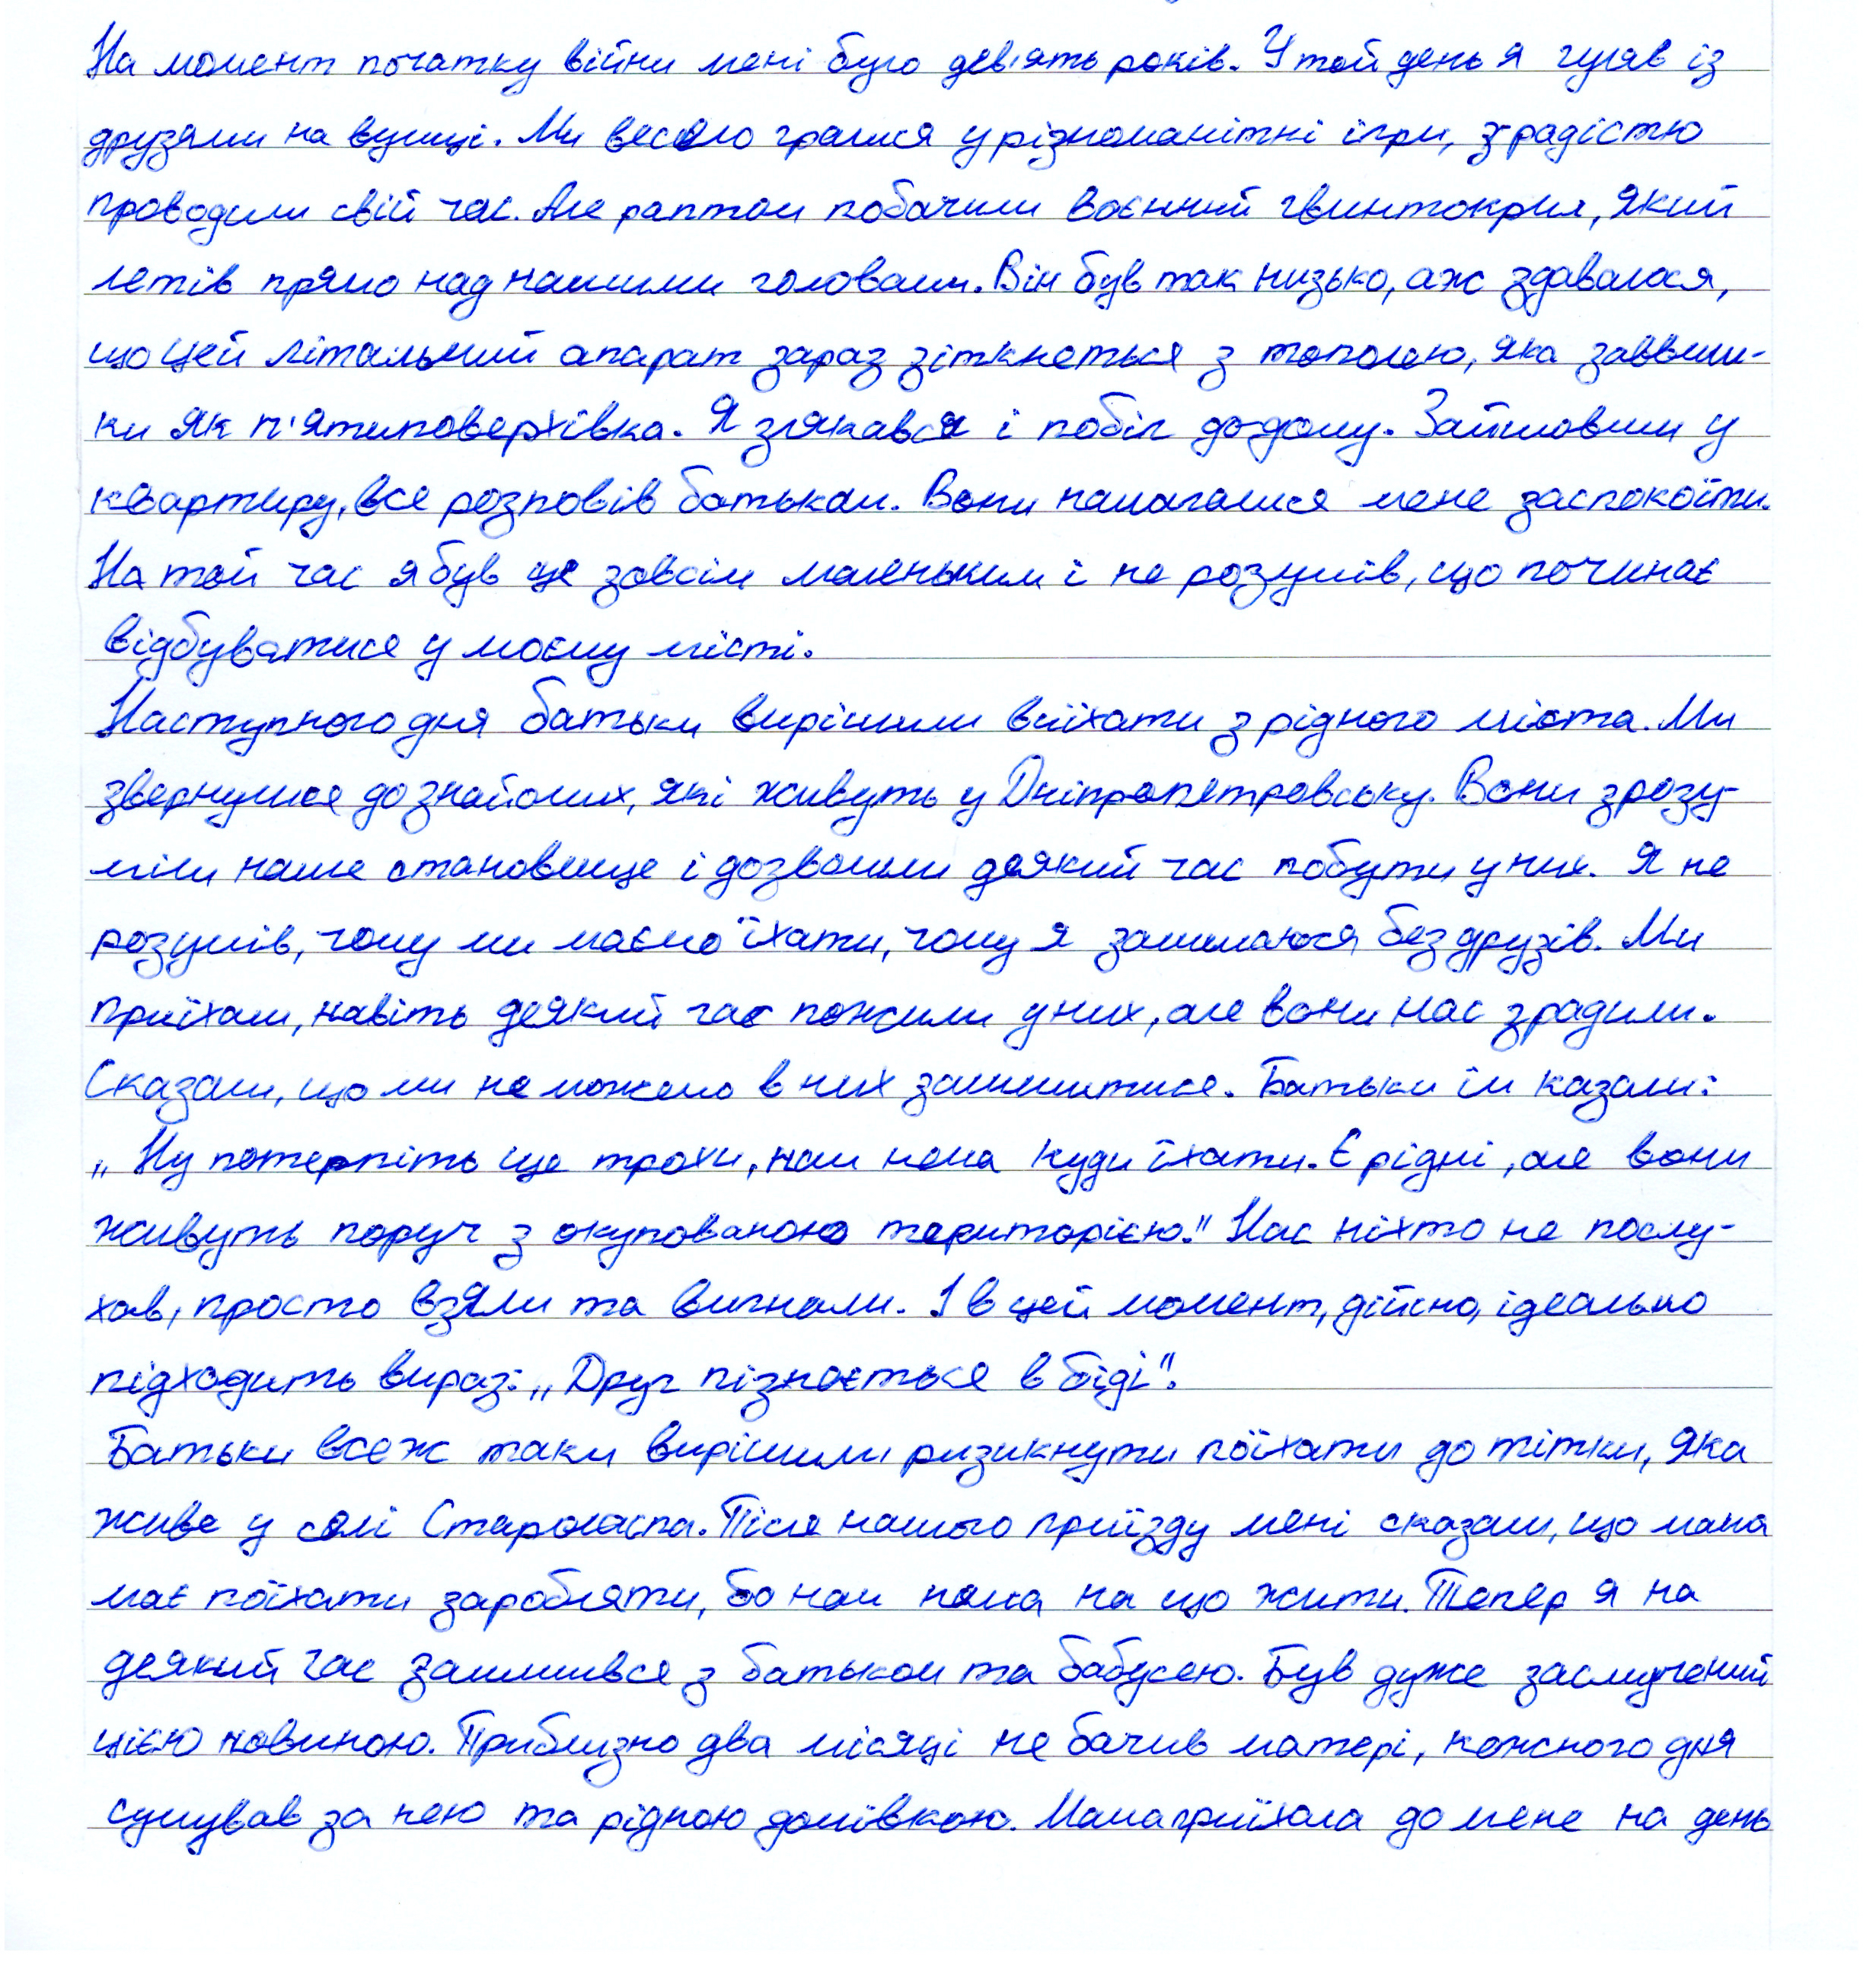 На момент початку війни мені було дев'ять років. У той день я гуляв із
друзями на вулиці. Ми весело гралися у різноманітні ігри, з радістю
проводили свій час. Але раптом побачили воєнний гвинтокрил, який
летів прямо над нашими головами. Він був так низько, аж здавалося,
що цей літальний апарат зараз зіткнеться з тополею, яка заввиш-
ки як п'ятиповерхівка. Я злякався і побіг додому. Зайшовши у
квартиру, все розповів батькам. Вони намагалися мене заспокоїти.
На той час я був ще зовсім маленьким і не розумів, що починає
відбуватися у моєму місті.
Наступного дня батьки вирішили виїхати з рідного міста. Ми
звернулися до знайомих, які живуть у Дніпропетровську. Вони зрозу-
міли наше становище і дозволили деякий час побути у них. Я не
розумів, чому ми маємо їхати, чому я залишаюся без друзів. Ми
приїхали, навіть деякий час пожили у них, але вони нас зрадили.
Сказали, що ми не можемо в них залишитися. Батьки їм казали:
„Ну потерпіть ще трохи, нам нема куди їхати. Є рідні, але вони
живуть поруч з окупованою територією." Нас ніхто не послу-
хав, просто взяли та вигнали. І в цей момент, дійсно, ідеально
підходить вираз: „Друг пізнається в біді".
Батьки все ж таки вирішили ризикнути поїхати до тітки, яка
живе у селі Староласпа. Після нашого приїзду мені сказали, що мама
має поїхати заробляти, бо нам нема на що жити. Тепер я на
деякий час залишився з батьком та бабусею. Був дуже засмучений
цією новиною. Приблизно два місяці не бачив матері, кожного дня
сумував за нею та рідною домівкою. Мама приїхала до мене на день